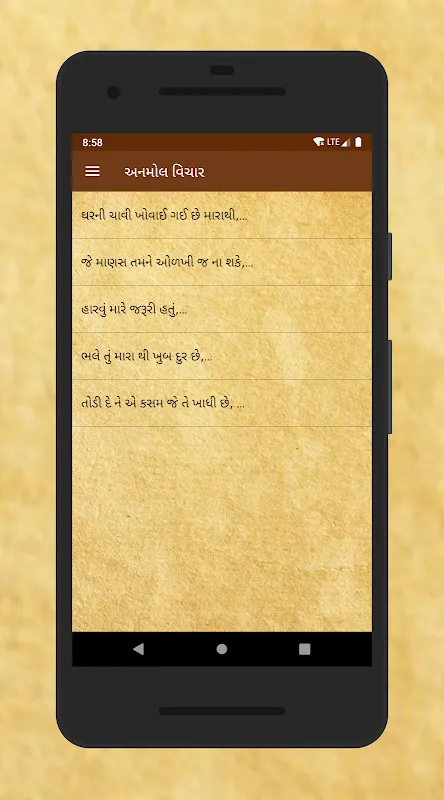 8:58 LTE
અનમોલ વિચાર
ઘરની ચાવી ખોવાઈ ગઈ છે મારાથી,...
જે માણસ તમને ઓળખી જ ના શકે,...
હારવું મારે જરૂરી હતું,...
ભલે તું મારા થી ખુબ દુર છે,...
તોડી દે ને એ કસમ જે તે ખાધી છે, ...